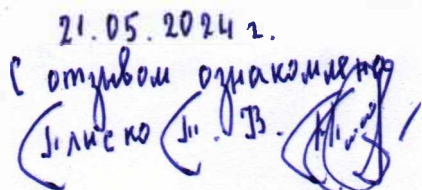 21.05.2024 г.
С отзывом ознакомлена
Плиско Т. В.